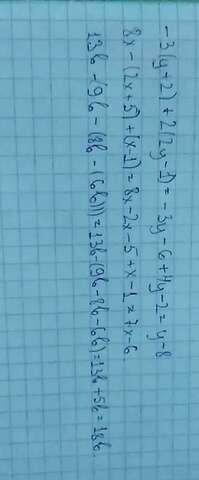 -3(y+2)+2(2y-1)=-3y-6+4y-2=y-8
8x-(2x+5)+(x-1)=8x-2x-5+x-1=7x-6
13b-(9b-(8b-(6b)))=13b-(9b-8b-6b)=13b+5b=18b.